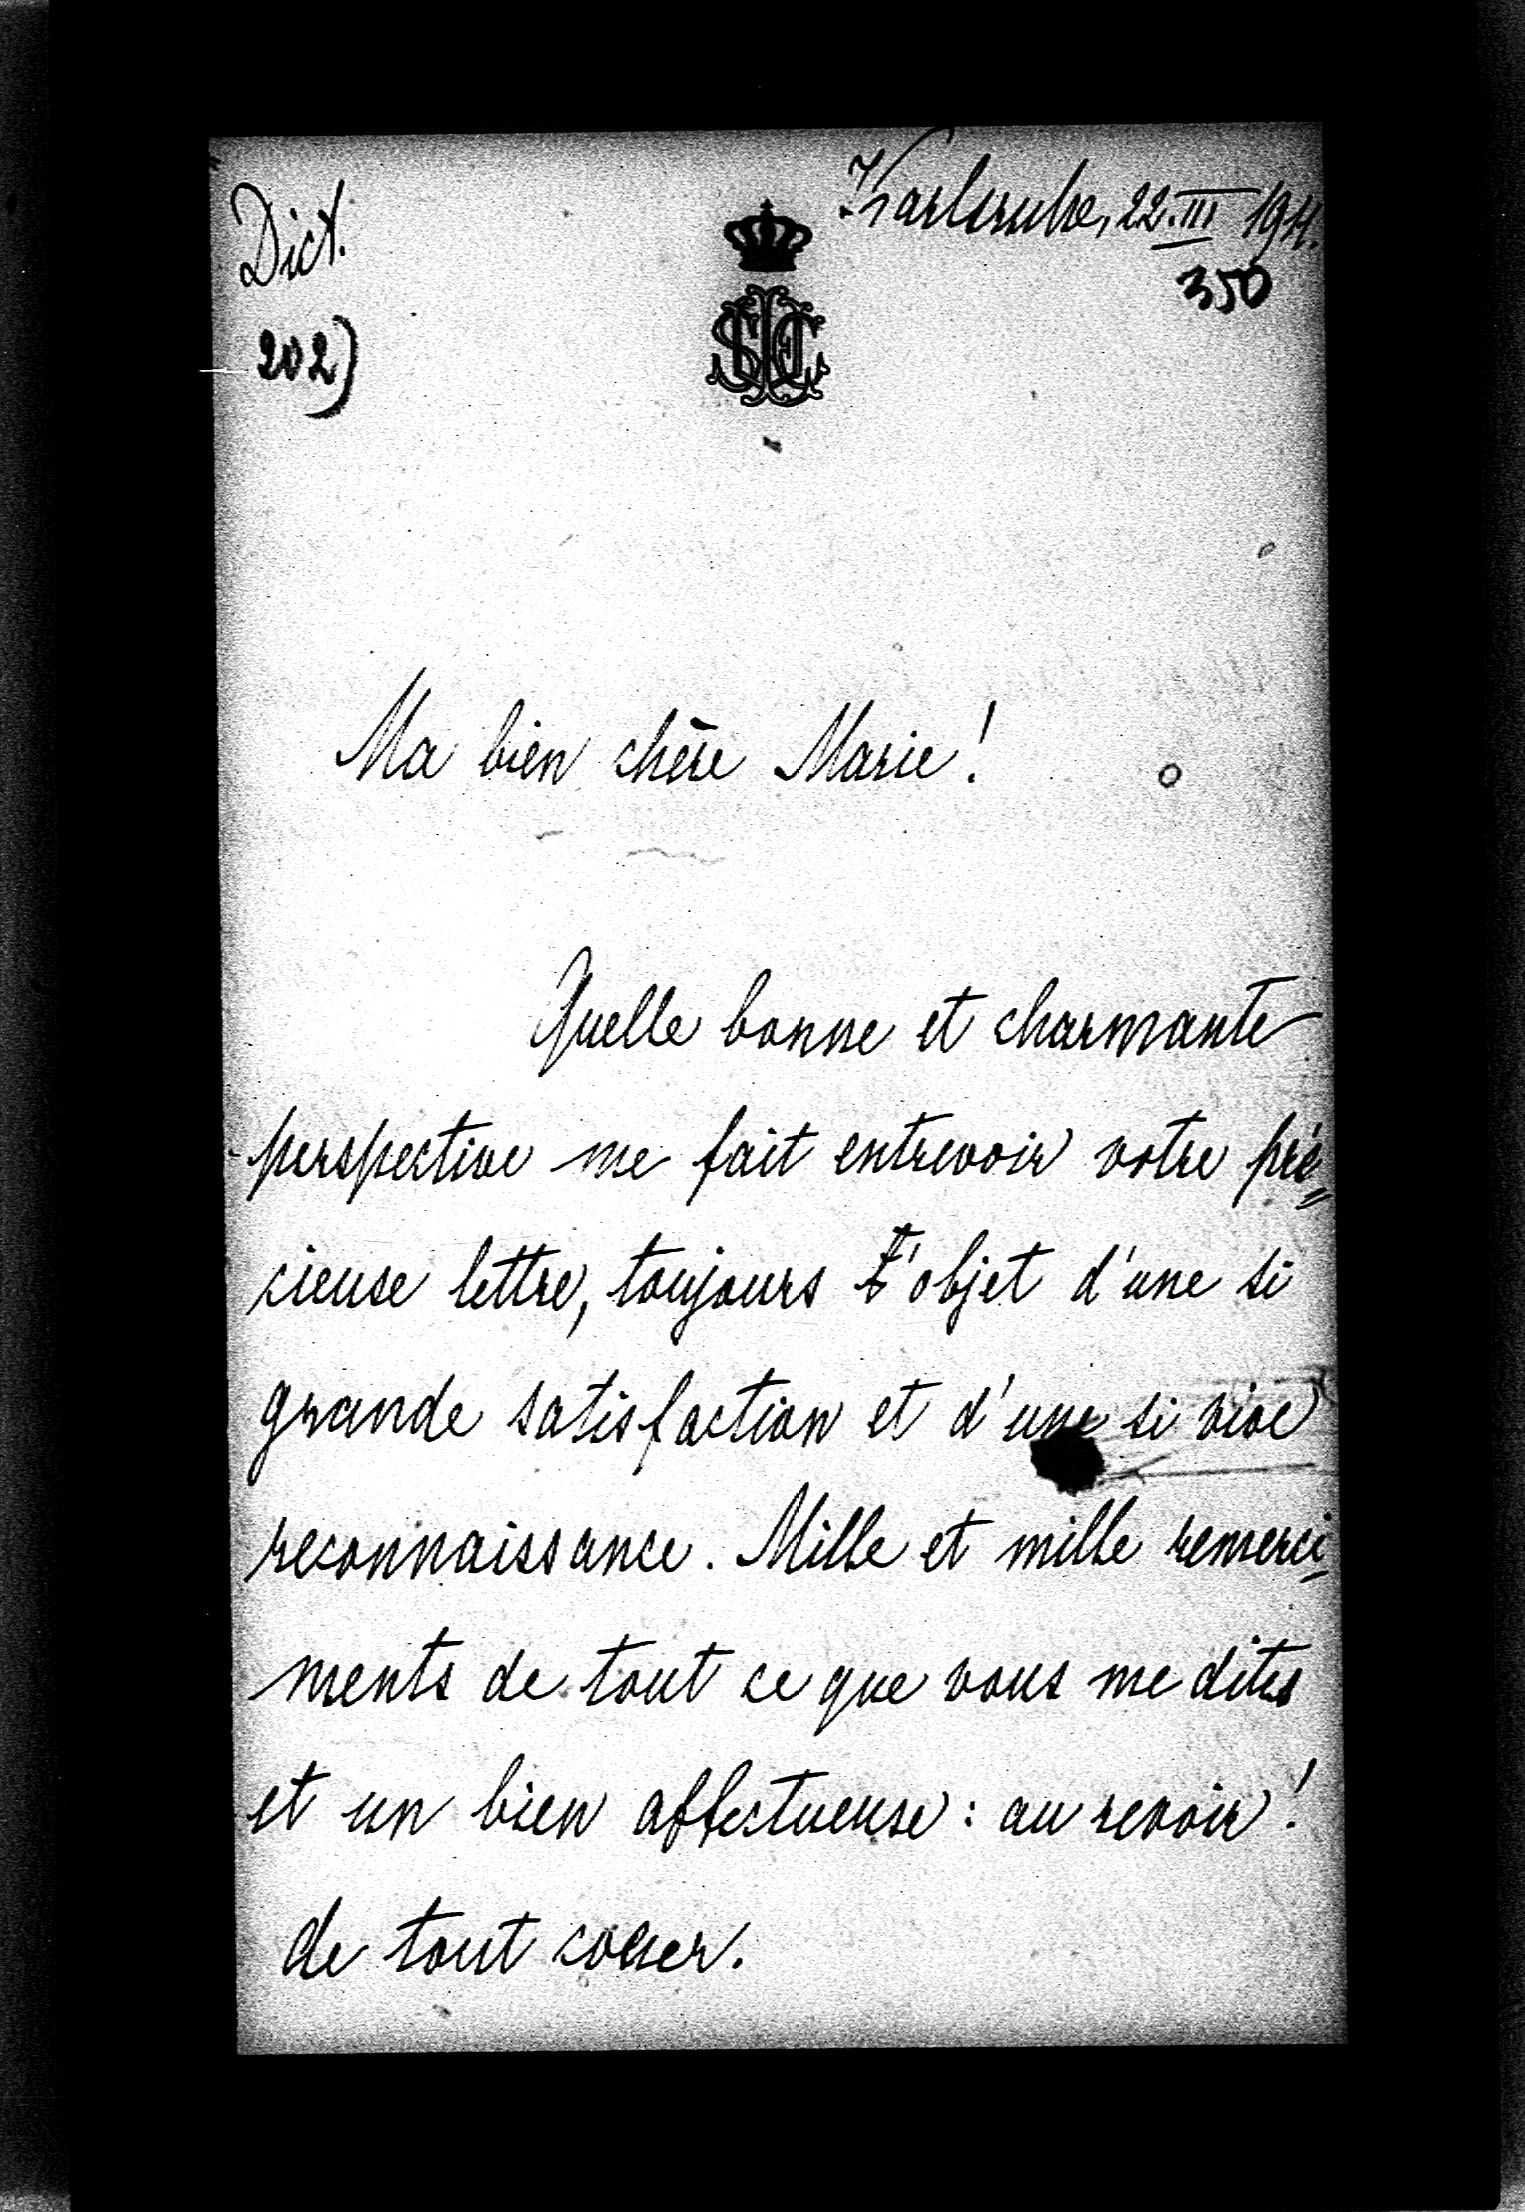 Dict.
Karlsruhe, 22. III 1911.
350
202)
Ma bien chère Marie!
Quelle bonne et charmante
perspective me fait entrevoir votre pré=
cieuse lettre, toujours l'objet d'une si
grande satisfaction et d'une si vive
reconnaissance. Mille et mille remerci=
ments de tout ce que vous me dites
et un bien affectueuse: au revoir!
de tout coeur.